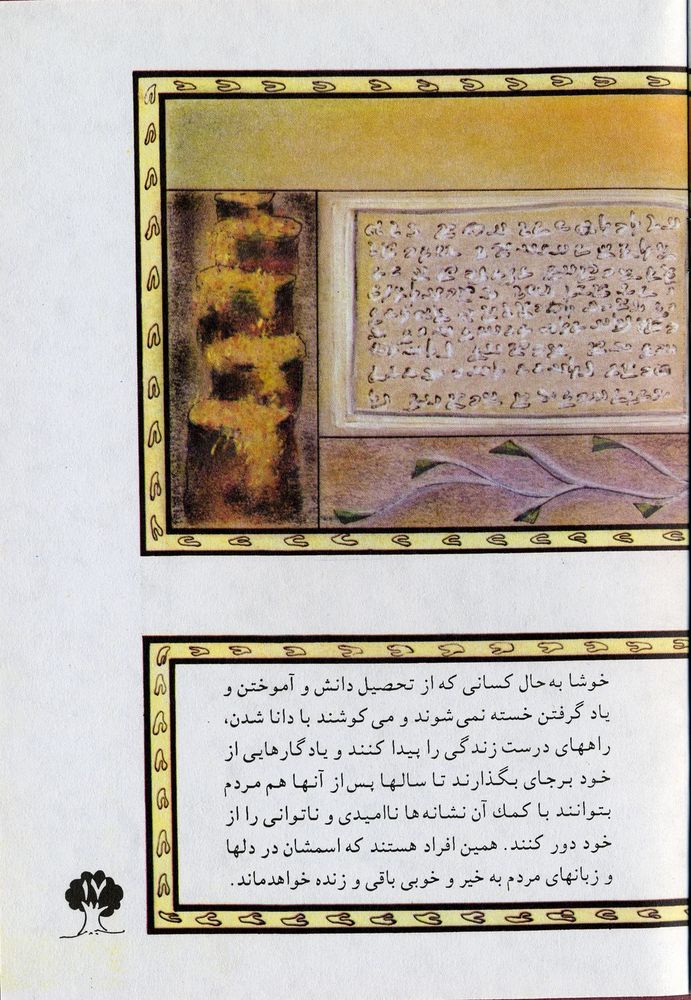 خوشا به‌حال کسانی که از تحصیل دانش و آموختن و
یاد گرفتن خسته نمی‌شوند و می‌کوشند با دانا شدن،
راههای درست زندگی را پیدا کنند و یادگارهایی از
خود برجای بگذارند تا سالها پس‌از آنها هم مردم
بتوانند با کمك آن نشانه‌ها ناامیدی و ناتوانی را از
خود دور کنند. همین افراد هستند که اسمشان در دلها
و زبانهای مردم به خیر و خوبی باقی و زنده خواهدماند.
۱۷